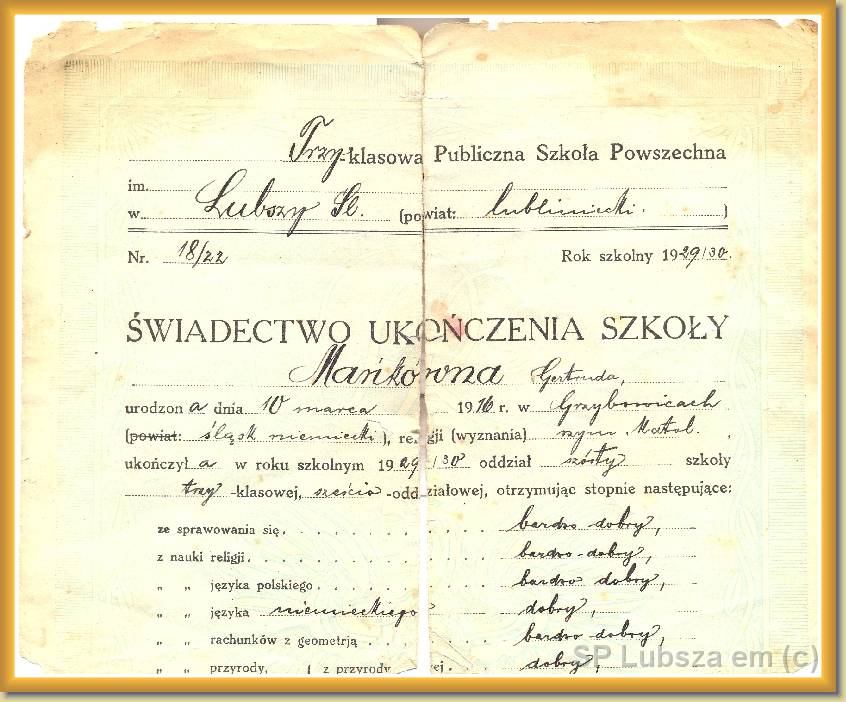 Trzy-klasowa Publiczna Szkoła Powszechna
im.
w Lubszy Śl. (powiat: lubliniecki.)
Nr. 18/22 Rok szkolny 1929/30.
ŚWIADECTWO UKOŃCZENIA SZKOŁY
Mańkówna Gertruda,
urodzona dnia 10 marca 1916 r. w Grzybowicach
(powiat: śląsk niemiecki), religji (wyznania) rzym. katol.,
ukończyła w roku szkolnym 1929/30 oddział szósty szkoły
trzy-klasowej, sześcio-oddziałowej, otrzymując stopnie następujące:
ze sprawowania się. bardzo dobry,
z nauki religji. bardzo dobry,
„ „ języka polskiego. bardzo dobry,
„ „ języka niemieckiego dobry,
„ „ rachunków z geometrją bardzo dobry,
„ „ przyrody, ( z przyrody ej. dobry,
SP Lubsza em (c)